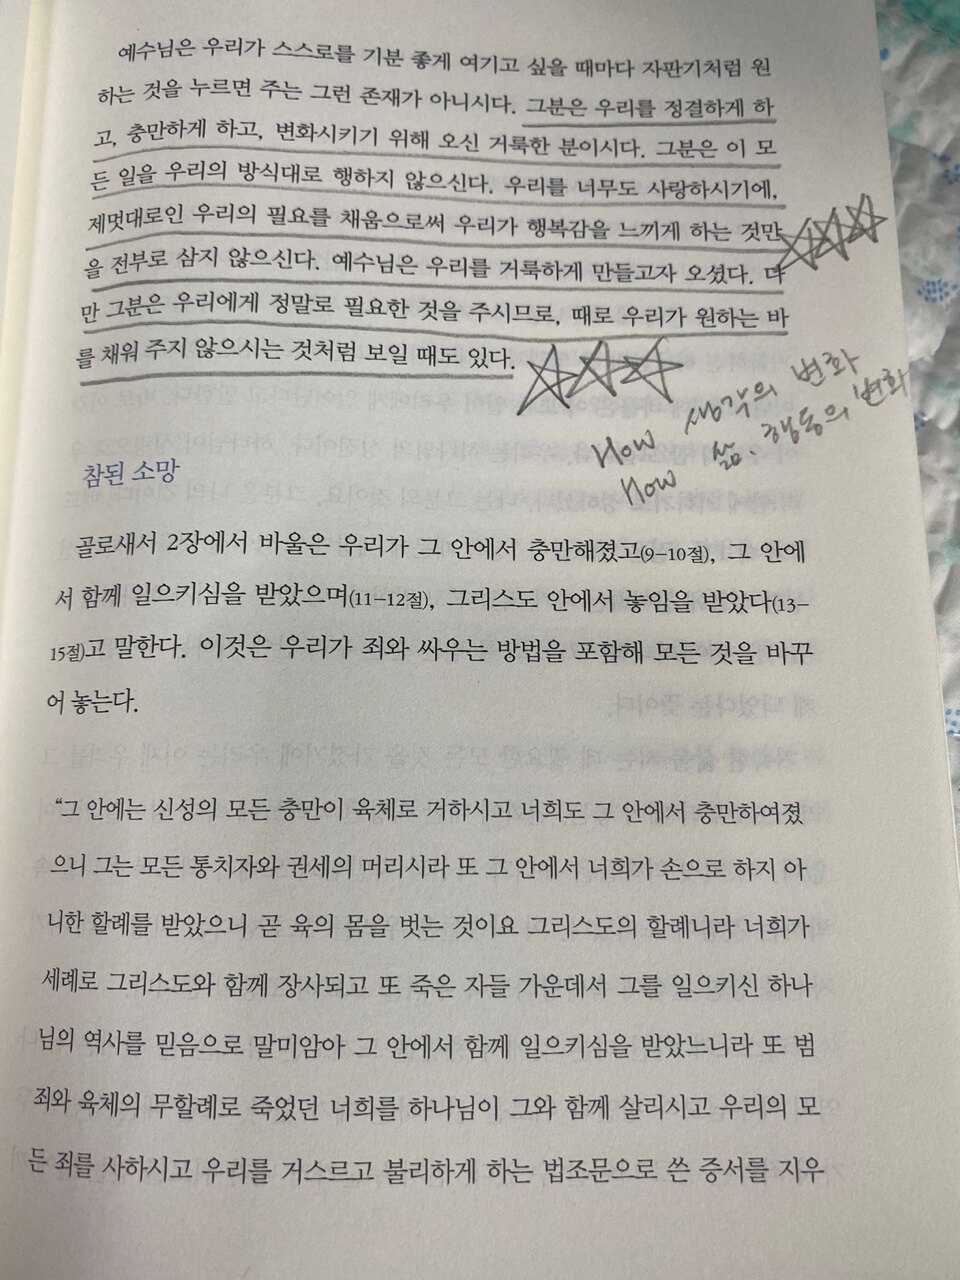 예수님은 우리가 스스로를 기분 좋게 여기고 싶을 때마다 자판기처럼 원
하는 것을 누르면 주는 그런 존재가 아니시다. 그분은 우리를 정결하게 하
고, 충만하게 하고, 변화시키기 위해 오신 거룩한 분이시다. 그분은 이 모
든 일을 우리의 방식대로 행하지 않으신다. 우리를 너무도 사랑하시기에,
제멋대로인 우리의 필요를 채움으로써 우리가 행복감을 느끼게 하는 것만
을 전부로 삼지 않으신다. 예수님은 우리를 거룩하게 만들고자 오셨다. 다
만 그분은 우리에게 정말로 필요한 것을 주시므로, 때로 우리가 원하는 바
를 채워 주지 않으시는 것처럼 보일 때도 있다.
How 생각의 변화
How 삶. 행동의 변화
참된 소망
골로새서 2장에서 바울은 우리가 그 안에서 충만해졌고(9–10절), 그 안에
서 함께 일으키심을 받았으며(11–12절), 그리스도 안에서 놓임을 받았다(13–
15절)고 말한다. 이것은 우리가 죄와 싸우는 방법을 포함해 모든 것을 바꾸
어 놓는다.
“그 안에는 신성의 모든 충만이 육체로 거하시고 너희도 그 안에서 충만하여졌
으니 그는 모든 통치자와 권세의 머리시라 또 그 안에서 너희가 손으로 하지 아
니한 할례를 받았으니 곧 육의 몸을 벗는 것이요 그리스도의 할례니라 너희가
세례로 그리스도와 함께 장사되고 또 죽은 자들 가운데서 그를 일으키신 하나
님의 역사를 믿음으로 말미암아 그 안에서 함께 일으키심을 받았느니라 또 범
죄와 육체의 무할례로 죽었던 너희를 하나님이 그와 함께 살리시고 우리의 모
든 죄를 사하시고 우리를 거스르고 불리하게 하는 법조문으로 쓴 증서를 지우